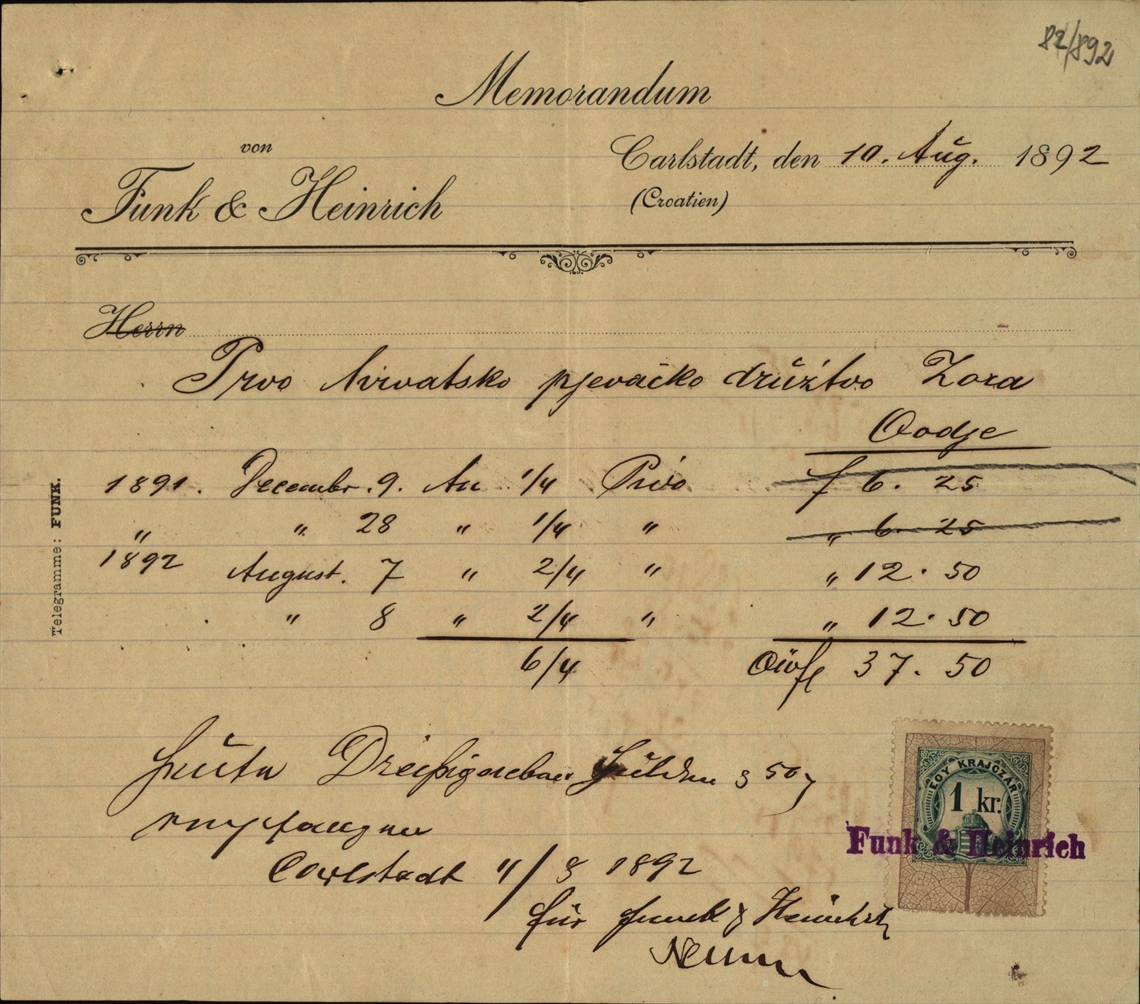 82/892
Memorandum
von
Funk & Heinrich
Carlstadt, den 10. Aug. 1892
(Croatien)
Herrn
Prvo hrvatsko pjevačko družtvo Zora
Ovdje
1891. Decembr. 9. An 1/4 Pivo f 6. 25
" " 28 " 1/4 " " 6. 25
1892 August. 7 " 2/4 " " 12. 50
" 8 " 2/4 " " 12. 50
6/4 37. 50
Telegramme: FUNK.
Heute Dreißigsieben Gulden 50
empfangen
EGY KRAJCZÁR
1 kr.
Funk & Heinrich
Carlstadt 11/8 1892
für Funk & Heinrich